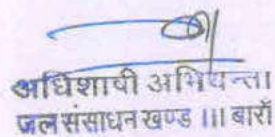 अधिशाषी अभियन्ता
जल संसाधन खण्ड III बाराँ